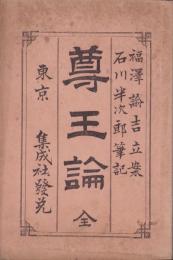 福澤諭吉立案
石川半次郎筆記
尊王論 全
東京 集成社發兌